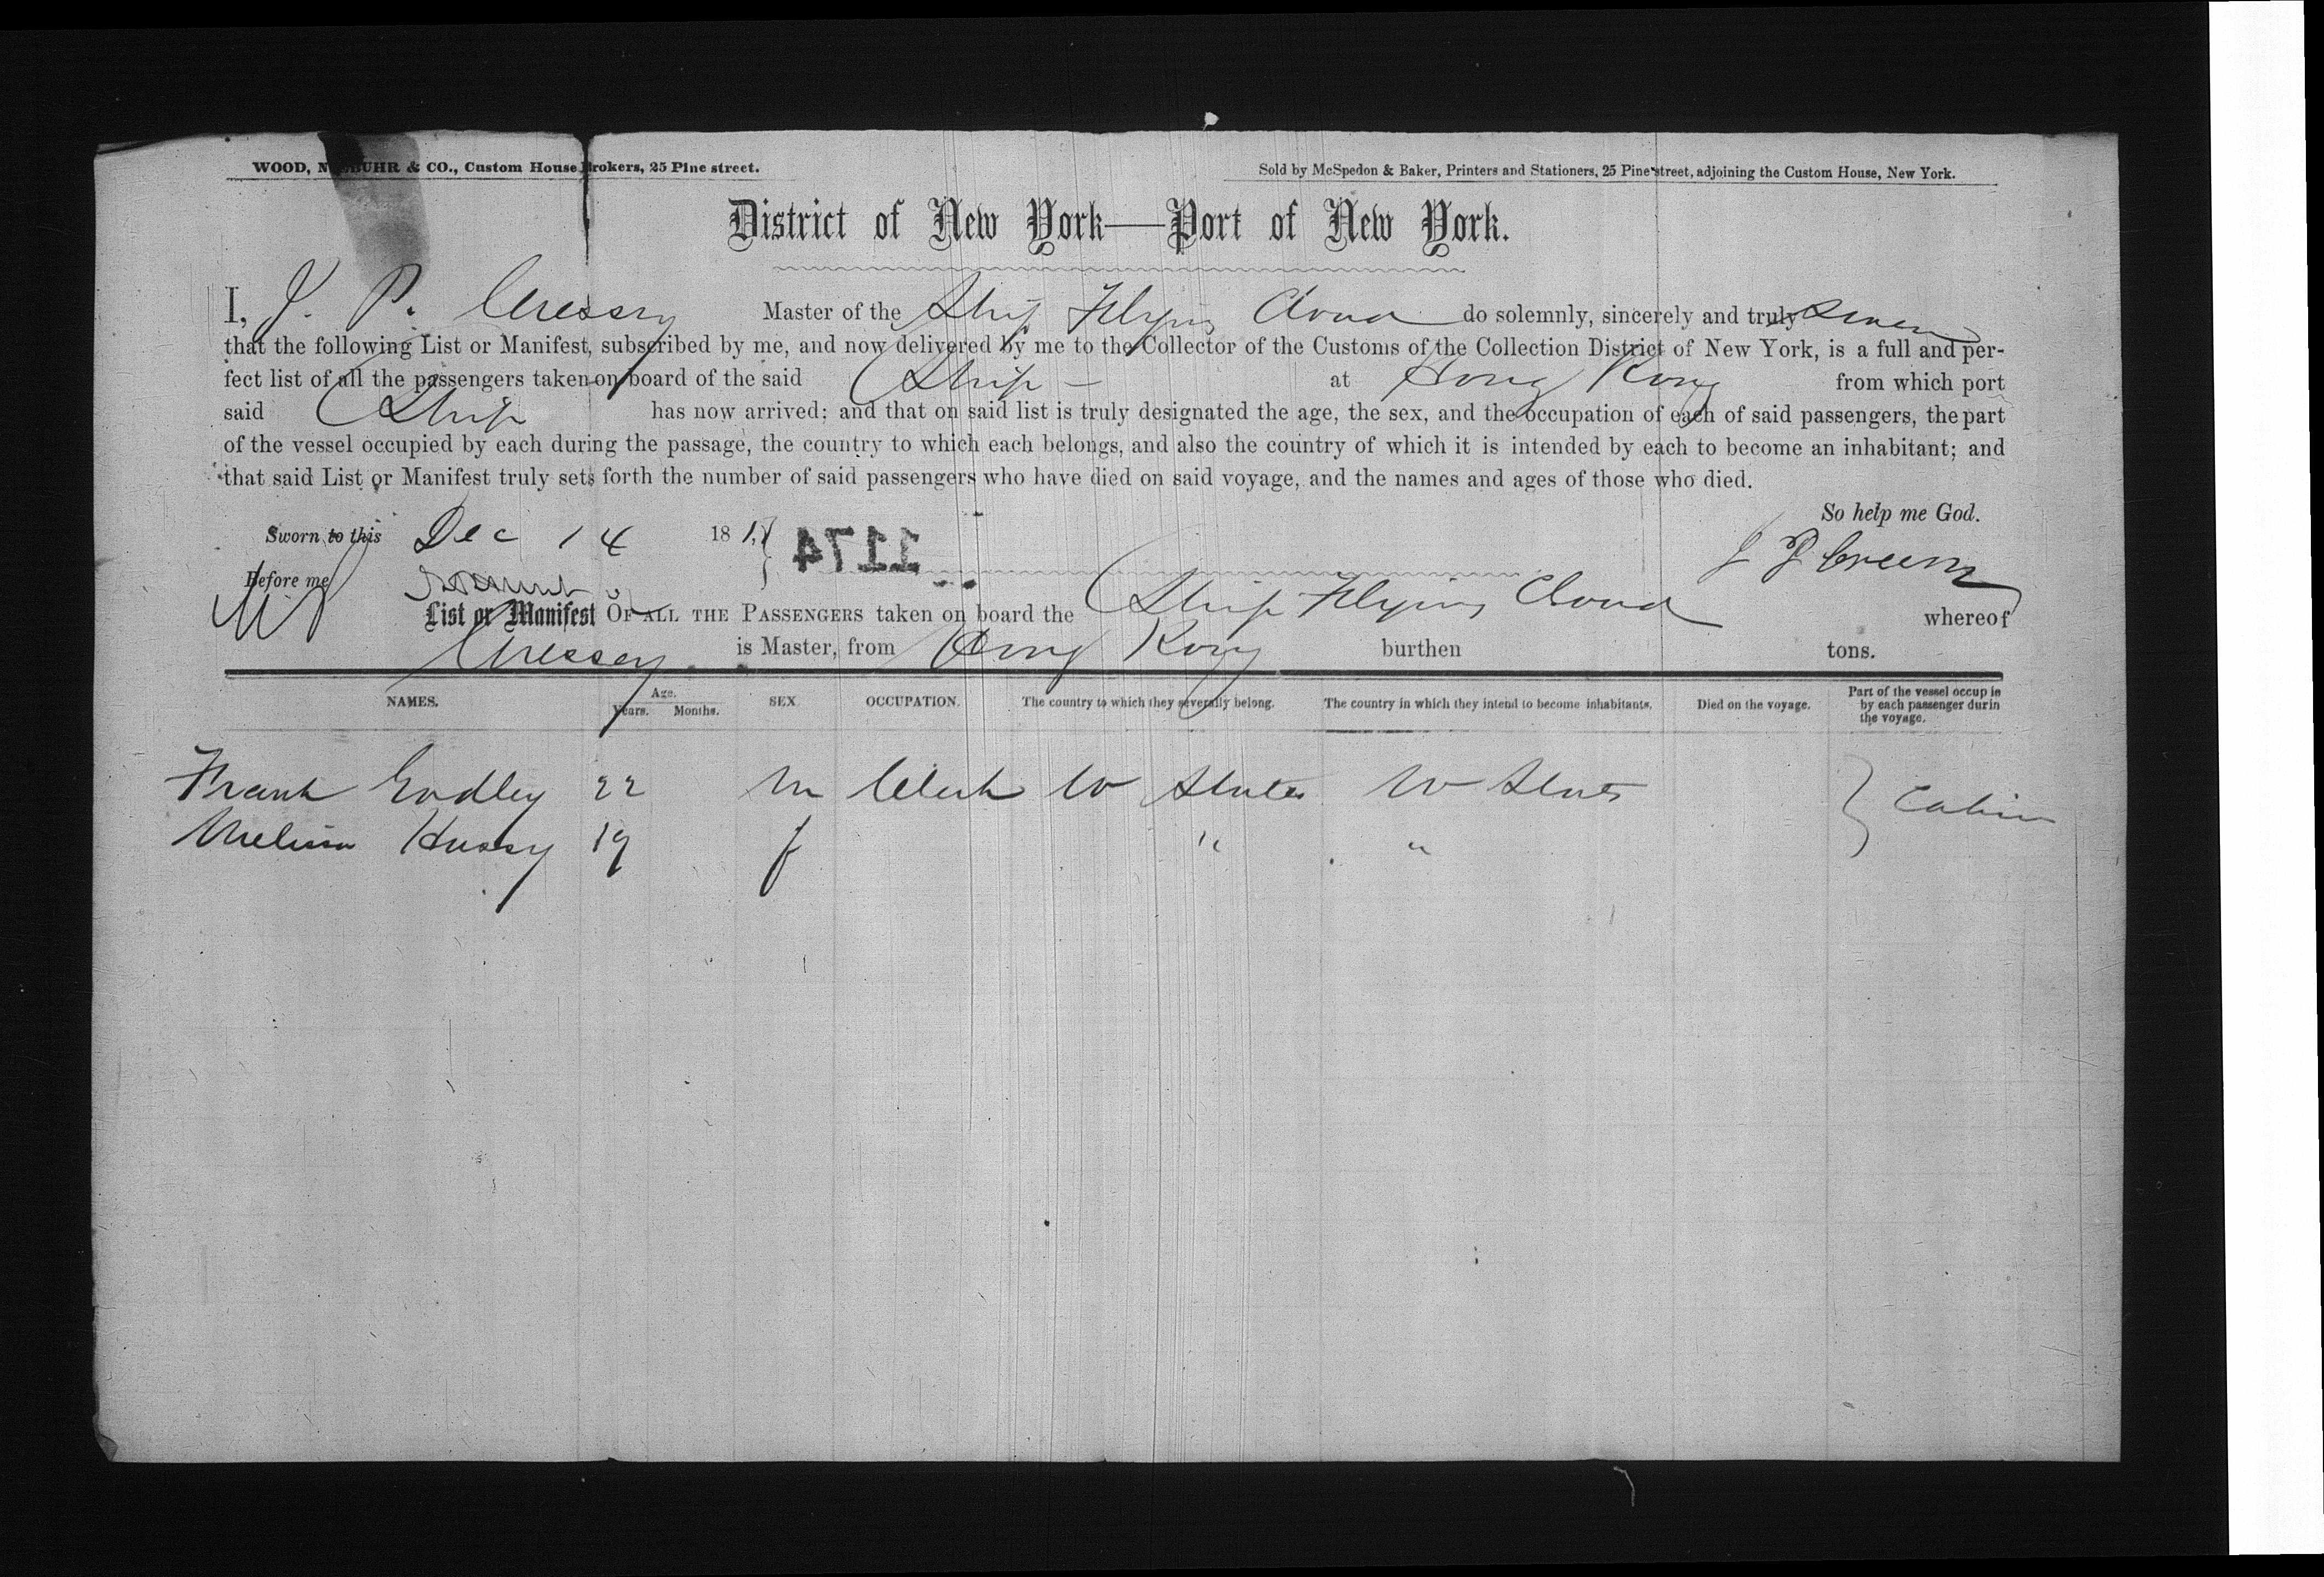 WOOD, & CO., Custom House Brokers, 25 Pine street.
Sold by McSpedon & Baker, Printers and Stationers, 25 Pine street, adjoining the Custom House, New York.
District of New York—Port of New York.
I, J. P. Cressey Master of the Ship Flying Cloud do solemnly, sincerely and truly swear
that the following List or Manifest, subscribed by me, and now delivered by me to the Collector of the Customs of the Collection District of New York, is a full and per-
fect list of all the passengers taken on board of the said Ship at Hong Kong from which port
said Ship has now arrived; and that on said list is truly designated the age, the sex, and the occupation of each of said passengers, the part
of the vessel occupied by each during the passage, the country to which each belongs, and also the country of which it is intended by each to become an inhabitant; and
that said List or Manifest truly sets forth the number of said passengers who have died on said voyage, and the names and ages of those who died.
So help me God.
Sworn to this Dec 14 18
1174
J P Cressy
Before me
List or Manifest OF ALL THE PASSENGERS taken on board the Ship Flying Cloud whereof
Cressey is Master, from Hong Kong burthen tons.
NAMES. Age. Years. Months. SEX OCCUPATION. The country to which they severally belong. The country in which they intend to become inhabitants. Died on the voyage. Part of the vessel occup in by each passenger durin the voyage.
Frank 22 M Clerk U States U States Cabin
Melissa Hussy 19 f " "